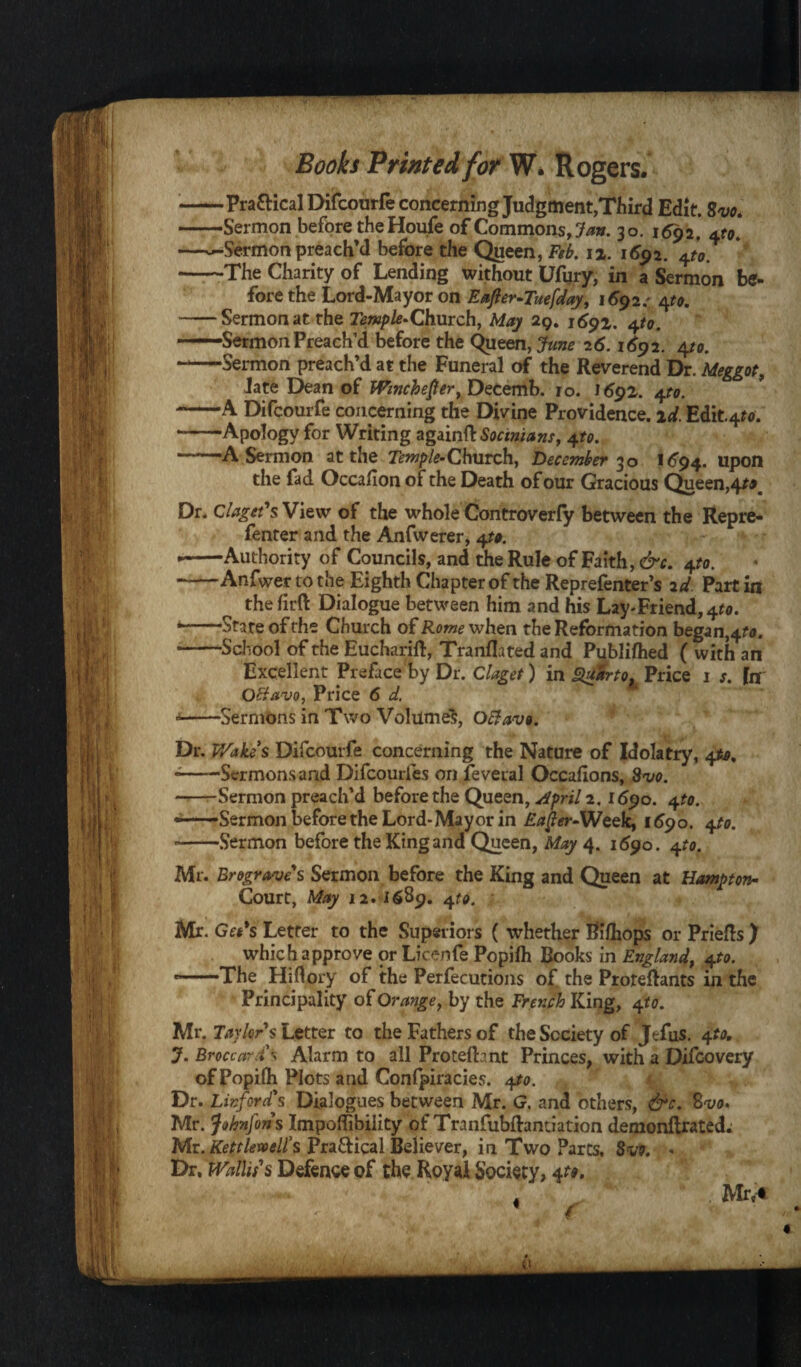 Books Printed for W. Rogers.
——Practical Discourse concerning Judgment,Third Edit. 8vo.
——Sermon before the House of Commons, Jan. 30. 1692. 4to.
——Sermon preach'd before the Queen, Feb. 12. 1692. 4to.
——The Charity of Lending without Usury, in a Sermon be-
fore the Lord-Mayor on Easter-Tuesday, 1692. 4to.
——Sermon at the Temple-Church, May 29. 1692. 4to.
——Sermon Preach'd before the Queen, June 26. 1692. 4to.
——Sermon preach'd at the Funeral of the Reverend Dr. Meggot,
late Dean of Winchester, Decemb. 10. 1692. 4to.
——A Discourse concerning the Divine Providence. 2d. Edit.4to.
——Apology for Writing against Socinians, 4to.
——A Sermon at the Temple-Church, December 30 1694. upon
the sad Occasion of the Death of our Gracious Queen,4to.
Dr. Claget's View of the whole Controversy between the Repre-
senter and the Answerer, 4to.
——Authority of Councils, and the Rule of Faith, &c. 4to.
——Answer to the Eighth Chapter of the Representer's 2d Part in
the first Dialogue between him and his Lay-Friend, 4to.
——State of the Church of Rome when the Reformation began,4to.
——School of the Eucharist, Translated and Published ( with an
Excellent Preface by Dr. Claget ) in Quarto, Price 1 s. In
Octavo, Price 6 d.
——Sermons in Two Volumes, Octavo.
Dr. Wake's Discourse concerning the Nature of Idolatry, 4to.
——Sermons and Discourses on several Occasions, 8vo.
——Sermon preach'd before the Queen, April 2. 1690. 4to.
——Sermon before the Lord-Mayor in Easter-Week, 1690. 4to.
——Sermon before the King and Queen, May 4. 1690. 4to.
Mr. Brograve's Sermon before the King and Queen at Hampton-
Court, May 12. 1689. 4to.
Mr. Gee's Letter to the Superiors ( whether Bishops or Priests )
which approve or License Popish Books in England, 4to.
——The History of the Persecutions of the Protestants in the
Principality of Orange, by the French King, 4to.
Mr. Taylor's Letter to the Fathers of the Society of Jesus. 4to.
J. Broccard's Alarm to all Protestant Princes, with a Discovery
of Popish Plots and Conspiracies. 4to.
Dr. Linford's Dialogues between Mr. G. and others, &c. 8vo.
Mr. Johnson's Impossibility of Transubstantiation demonstrated.
Mr. Kettlewell's Practical Believer, in Two Parts. 8vo.
Dr. Wallis's Defence of the Royal Society, 4to.
Mr.